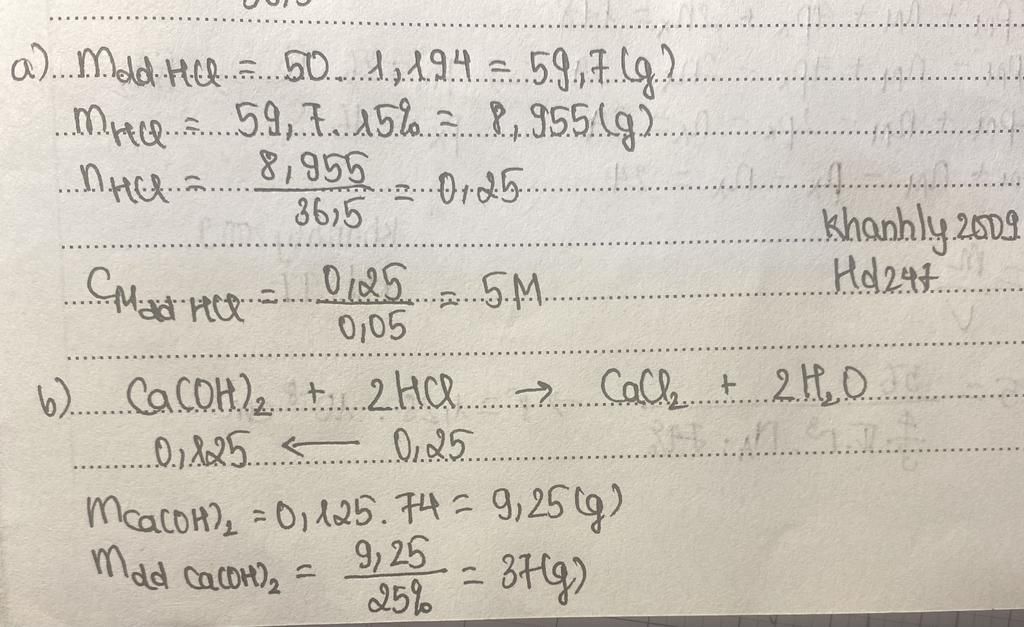 a) mdd HCl = 50. 1,194 = 59,7(g)
mHCl = 59,7. 15% = 8,955(g)
nHCl = 8,955/36,5 = 0,25
khanhly 2509
Hd247
CMdd HCl = 0,25/0,05 = 5M
b) Ca(OH)2 + 2HCl → CaCl2 + 2H2O
0,125 ← 0,25
mCa(OH)2 = 0,125. 74 = 9,25(g)
mdd Ca(OH)2 = 9,25/25% = 37(g)